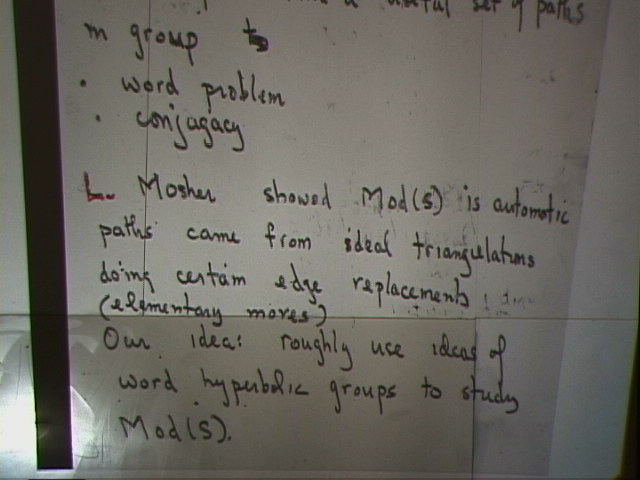 a useful set of paths
in group to
· word problem
· conjagacy
L. Mosher showed Mod(S) is automatic
paths came from ideal triangulations
doing certain edge replacements
(elementary moves)
Our idea: roughly use ideas of
word hyperbolic groups to study
Mod(S).